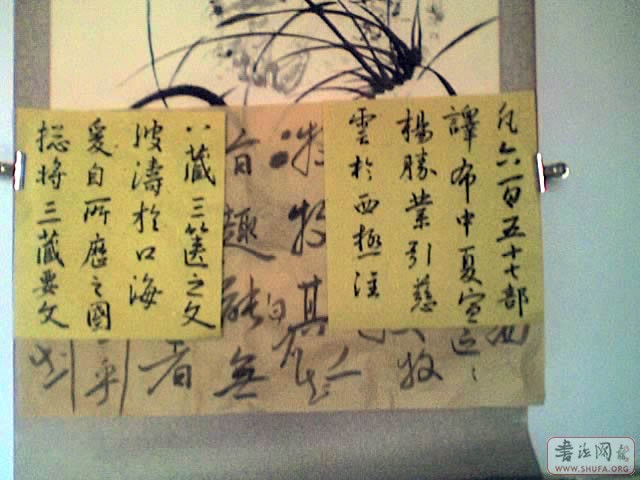 凡六百五十七部
譯布中夏宣
楊勝業引慈
雲於西極注
八藏三篋之文
波濤於口海
爰自所歷之國
捴将三藏要文
牧
其
趣能無
者
書法网
WWW.SHUFA.ORG